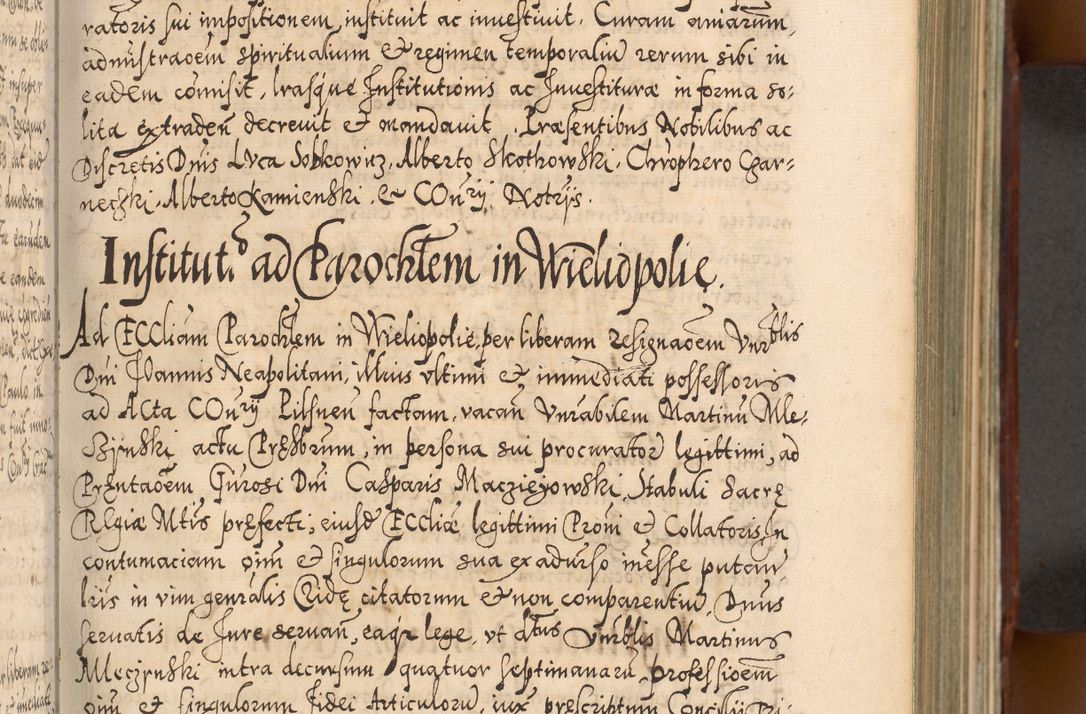 ratoris sui impositionem, instituit ac investivit. Curam aniarum,
admistraoem spiritualium & regimen temporaliu rerum sibi in
eadem comisit, lrasque Institutionis ac Investituræ in forma so-
lita extraden decrevit & mandavit. Præsentibus Nobilibus ac
Discretis Dnis Luca Sobkowicz, Alberto Skothowski, Chrophero Czar-
neczki, Alberto Kamienski, & COnrÿ Notrijs.
Institut.o ad Parochlem in Wieliopolie.
Ad ECCliam Parochlem in Wieliopolie, per liberam resignaoem Vnrblis
Dni Joannis Neapolitani, illius ultimi & immediati possessoris
ad Acta COnrÿ Pilsnen factam, vacan Vnrabilem Martinu Me-
szynski actu Prȩsbrum, in persona sui procurator legittimi, ad
Prȩntaoem Gnrosi Dni Casparis Maczieyowski, Stabuli Sacrȩ
REgiæ Mtis prȩfecti, eiusd ECCliæ legittimi Proni & Collatoris, In
contumaciam oim & singulorum sua ex adurso inesse putan
lris in vim genralis Cridȩ citatorum & non comparentiu, Dnus
servatis de Jure servan, eaqz lege, vt dtus Vnrblis Martinus
Meczynski intra decursum quatuor septimanaru professioem
oim & singulorum fidei Articuloru, iux prȩscriptum Concilij Tri-